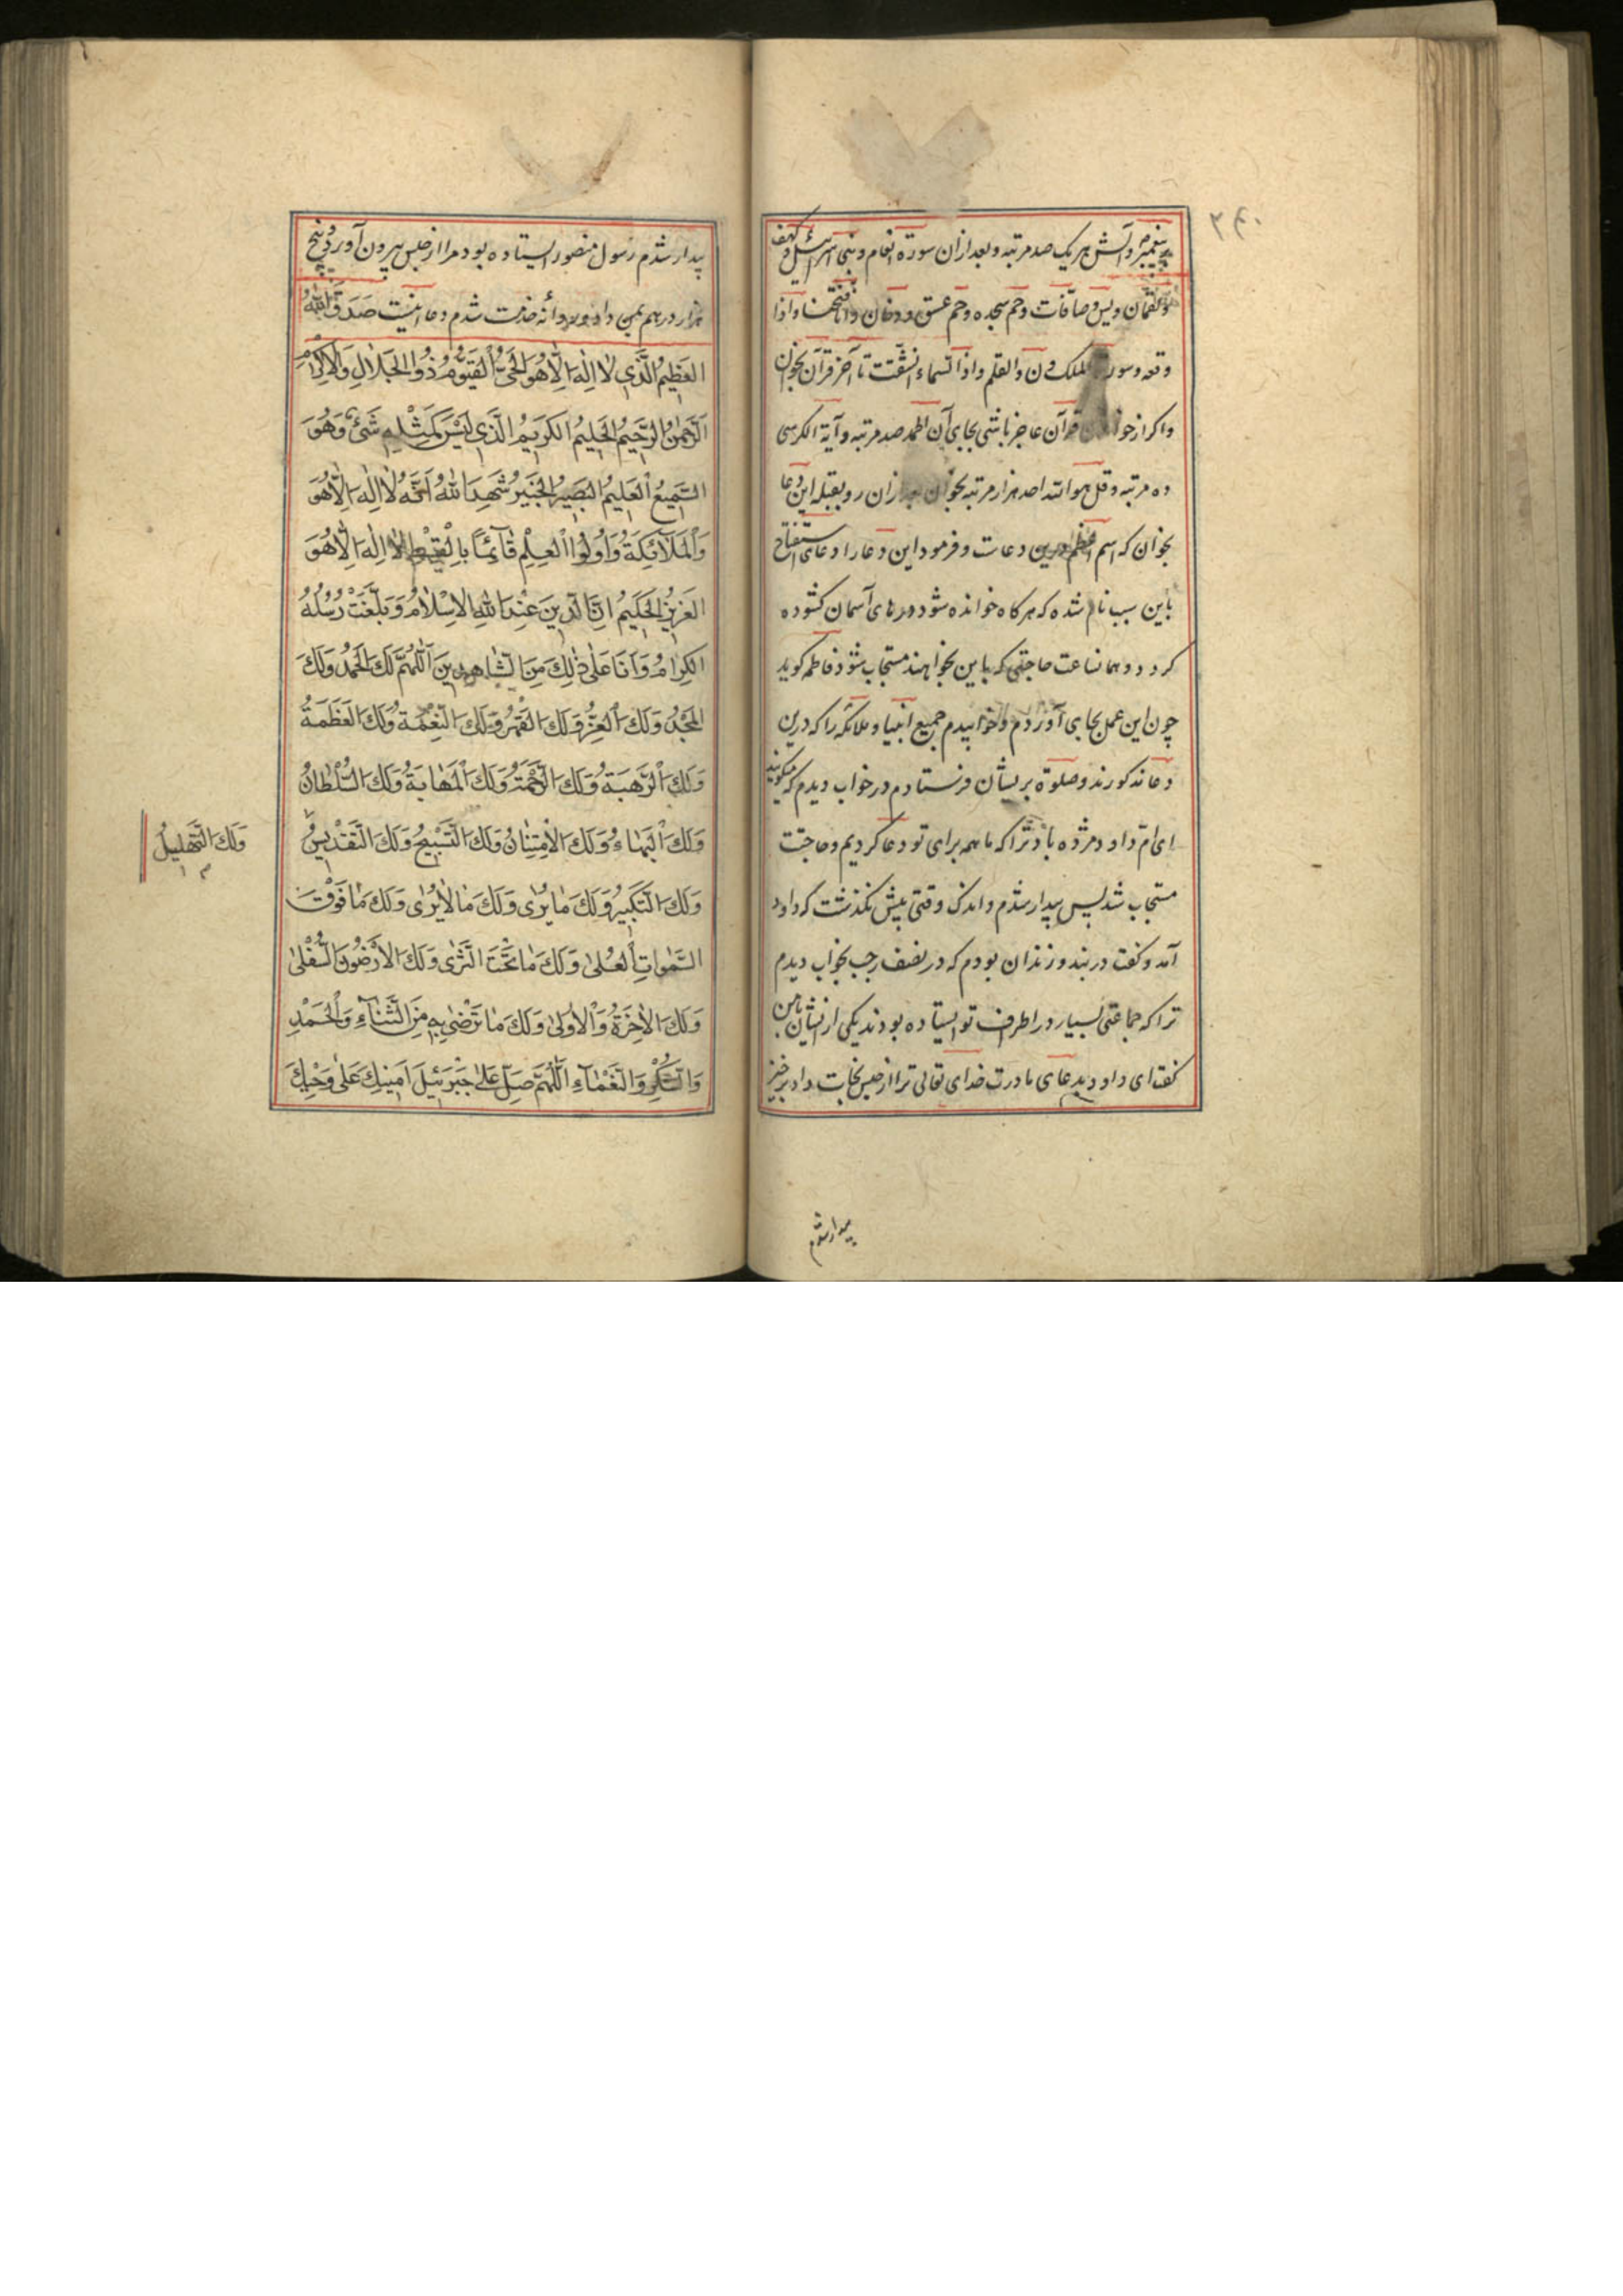 ۲۴۰
پیغمبر و آلش هر یک صد مرتبه و بعد از ان سوره انعام و بنی اسرائیل و کهف
و لقمان و یس و صافات و حم سجده و حم عسق و دخان و انا فتحنا و اذا
وقعه و سوره الملک و ن و القلم و اذا السماء انشقت تا آخر قرآن بخوان
واکر از خواندن قرآن عاجز باشی بجای آن الحمد صد مرتبه و آیة الکرسی
ده مرتبه و قل هو الله احد هزار مرتبه بخوان بعد ازان رو بقبله این دعا
بخوان که اسم اعظم درین دعاست و فرمود این دعا را دعای استفتاح
باین سبب نام شده که هرکاه خوانده شود درهای آسمان کشوده
کردد و همانساعت حاجتی که باین بخواهند مستجاب شود فاطمه کوید
چون این عمل بجای آوردم و خوابیدم جمیع انبیا و ملائکه را که درین
دعا مذکورند و صلوة بریشان فرستادم در خواب دیدم که میکویند
ای ام داود مژده باد ترا که ما همه برای تو دعا کردیم و حاجتت
مستجاب شد پس بیدار شدم و اندک وقتی بیش نکذشت که داود
آمد و کفت در بند و زندان بودم که در نصف رجب بخواب دیدم
ترا که جماعتی بسیار در اطراف تو ایستاده بودند یکی از یشان بامن
کفت ای داود بدعای مادرت خدای تعالی ترا از حبس نجات داد برخیز
بیدار شدم
بیدار شدم رسول منصور ایستاده بود مرا از حبس بیرون آورد و پنج
هزار درهم بمن داد و روانه خدمت شدم دعا اینست صَدَقَ اللهُ
العَظِیمُ الَّذِی لَا اِلٰهَ اِلَّا هُوَ الحَیُّ القَیُّومُ ذُو الجَلَالِ وَالاِکْرَامِ
الرَّحْمٰنُ الرَّحِیمُ الحَلِیمُ الکَرِیمُ الَّذِی لَیْسَ کَمِثْلِهِ شَئٌ وَهُوَ
السَّمِیعُ العَلِیمُ البَصِیرُ الخَبِیرُ شَهِدَ اللهُ اَنَّهُ لَا اِلٰهَ اِلَّا هُوَ
وَالمَلَآئِکَةُ وَاُولُوا العِلْمِ قَآئِمًا بِالْقِسْطِ لَا اِلٰهَ اِلَّا هُوَ
العَزِیزُ الحَکِیمُ اِنَّ الدِّینَ عِنْدَ اللهِ الاِسْلَامُ وَبَلَّغَتْ رُسُلُهُ
الکِرَامُ وَاَنَا عَلٰی ذٰلِکَ مِنَ الشَّاهِدِینَ اَللّٰهُمَّ لَکَ الحَمْدُ وَلَکَ
المَجْدُ وَلَکَ العِزُّ وَلَکَ القَهْرُ وَلَکَ النِّعْمَةُ وَلَکَ العَظَمَةُ
وَلَکَ الرَّهْبَةُ وَلَکَ الرَّحْمَةُ وَلَکَ المَهَابَةُ وَلَکَ السُّلْطَانُ
وَلَکَ البَهَاءُ وَلَکَ الاِمْتِنَانُ وَلَکَ التَّسْبِیحُ وَلَکَ التَّقْدِیسُ
وَلَکَ التَّهْلِیلُ
وَلَکَ التَّکْبِیرُ وَلَکَ مَا یُرٰی وَلَکَ مَا لَا یُرٰی وَلَکَ مَا فَوْقَ
السَّمٰوَاتِ العُلٰی وَلَکَ مَا تَحْتَ الثَّرٰی وَلَکَ الاَرَضُونَ السُّفْلٰی
وَلَکَ الاٰخِرَةُ وَالاُولٰی وَلَکَ مَا تَرْضٰی بِهِ مِنَ الثَّنَآءِ وَالحَمْدِ
وَالشُّکْرِ وَالنَّعْمَآءِ اَللّٰهُمَّ صَلِّ عَلٰی جَبْرَئِیلَ اَمِینِکَ عَلٰی وَحْیِکَ